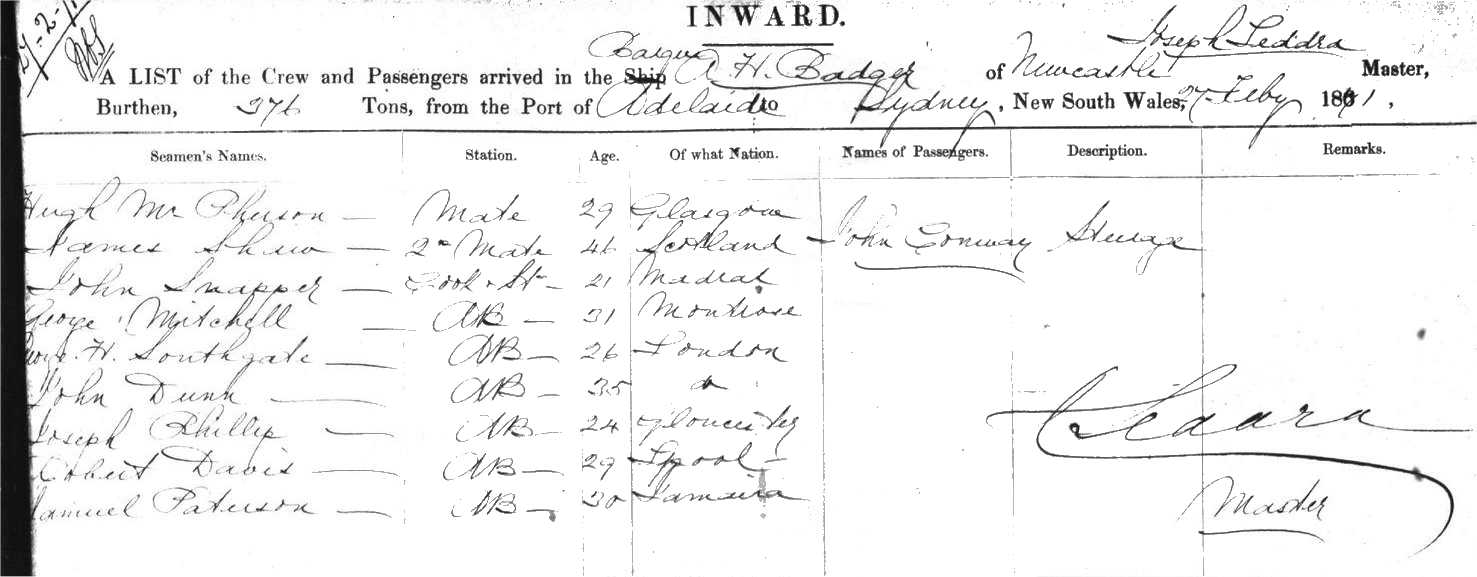 27-2-
INWARD.
Barque Joseph Leddra
A LIST of the Crew and Passengers arrived in the Ship A H. Badger of Newcastle Master,
Burthen, 276 Tons, from the Port of Adelaide to Sydney, New South Wales, 27 Feby 1871,
Seamen's Names. Station. Age. Of what Nation. Names of Passengers. Description. Remarks.
Hugh Mc Pherson — Mate 29 Glasgow
James Shaw — 2nd Mate 46 Scotland John Conway Steerage
John Snapper — Cook & St — 21 Madras
George Mitchell — AB — 31 Montrose
George H. Southgate — AB — 26 London
John Dunn — AB — 35 do
Joseph Phillip — AB — 24 Gloucester
Robert Davis — AB — 29 Lpool —
Samuel Paterson — AB — 30 Jamaica
J Leddra
Master